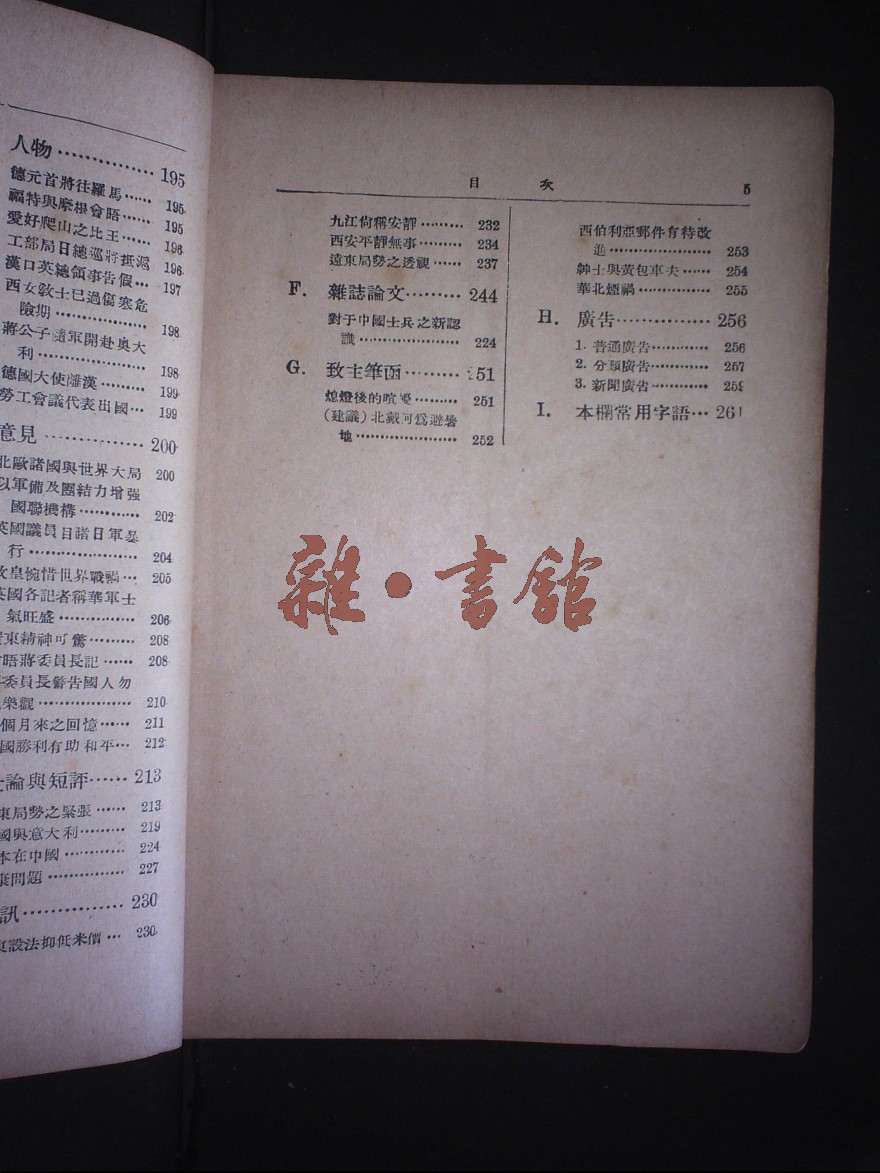 人物 …………… 195
德元首將往羅馬 …… 195
福特與摩根會晤 …… 195
愛好爬山之比王 …… 196
工部局日總巡將抵滬 196
漢口英總領事告假 … 197
西女敎士已過傷寒危
險期 ……………… 198
蔣公子隨軍開赴奧大
利 ………………… 198
德國大使離漢 ……… 199
勞工會議代表出國 … 199
意見 …………… 200
北歐諸國與世界大局 200
以軍備及團結力增强
國聯機構 ………… 202
英國議員目詣日軍暴
行 ………………… 204
敎皇惋惜世界戰禍 … 205
英國各記者稱華軍士
氣旺盛 …………… 206
東精神可驚 ……… 208
晤蔣委員長記 …… 208
委員長警告國人勿
樂觀 ……………… 210
個月來之回憶 …… 211
國勝利有助和平 … 212
論與短評 …… 213
東局勢之緊張 …… 213
國與意大利 ……… 219
本在中國 ………… 224
問題 …………… 227
訊 …………… 230
設法抑低米價 … 230
目 次 5
九江尙稱安靜 ……… 232
西安平靜無事 ……… 234
遠東局勢之透視 …… 237
F. 雜誌論文 ……… 244
對于中國士兵之新認
識 ………………… 224
G. 致主筆函 ……… 251
熄燈後的喧擾 ……… 251
(建議)北戴河爲避暑
地 ………………… 252
西伯利亞郵件有待改
進 ………………… 253
紳士與黃包車夫 …… 254
華北煙禍 …………… 255
H. 廣告 …………… 256
1. 普通廣告 ………… 256
2. 分類廣告 ………… 257
3. 新聞廣告 ………… 259
I. 本欄常用字語 … 261
雜·書館